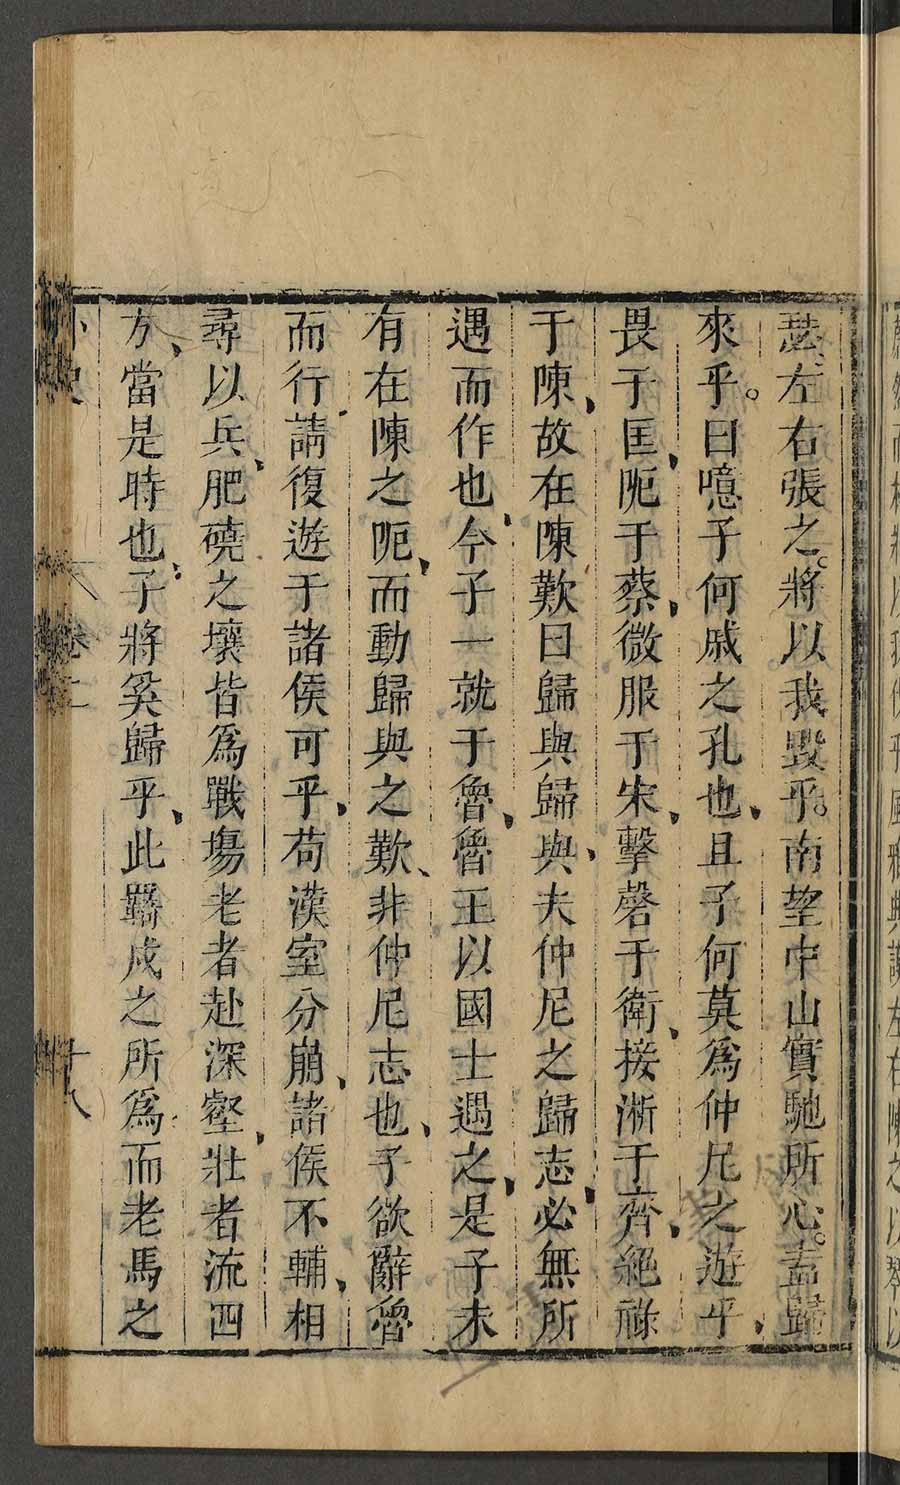 瑟左右張之將以我毀乎南望中山實馳所心盍歸
來乎曰噫子何戚之孔也且子何莫爲仲尼之遊乎
畏于匡阨于蔡微服于宋擊磬于衛接淅于齊絕祿
于陳故在陳歎曰歸與歸與夫仲尼之歸志必無所
遇而作也今子一就于魯魯王以國士遇之是子未
有在陳之阨而動歸與之歎非仲尼志也子欲辭魯
而行請復遊于諸侯可乎苟漢室分崩諸侯不輔相
尋以兵肥磽之壤皆爲戰場老者赴深壑壯者流四
方當是時也子將奚歸乎此羈戍之所爲而老馬之
卷二
十八